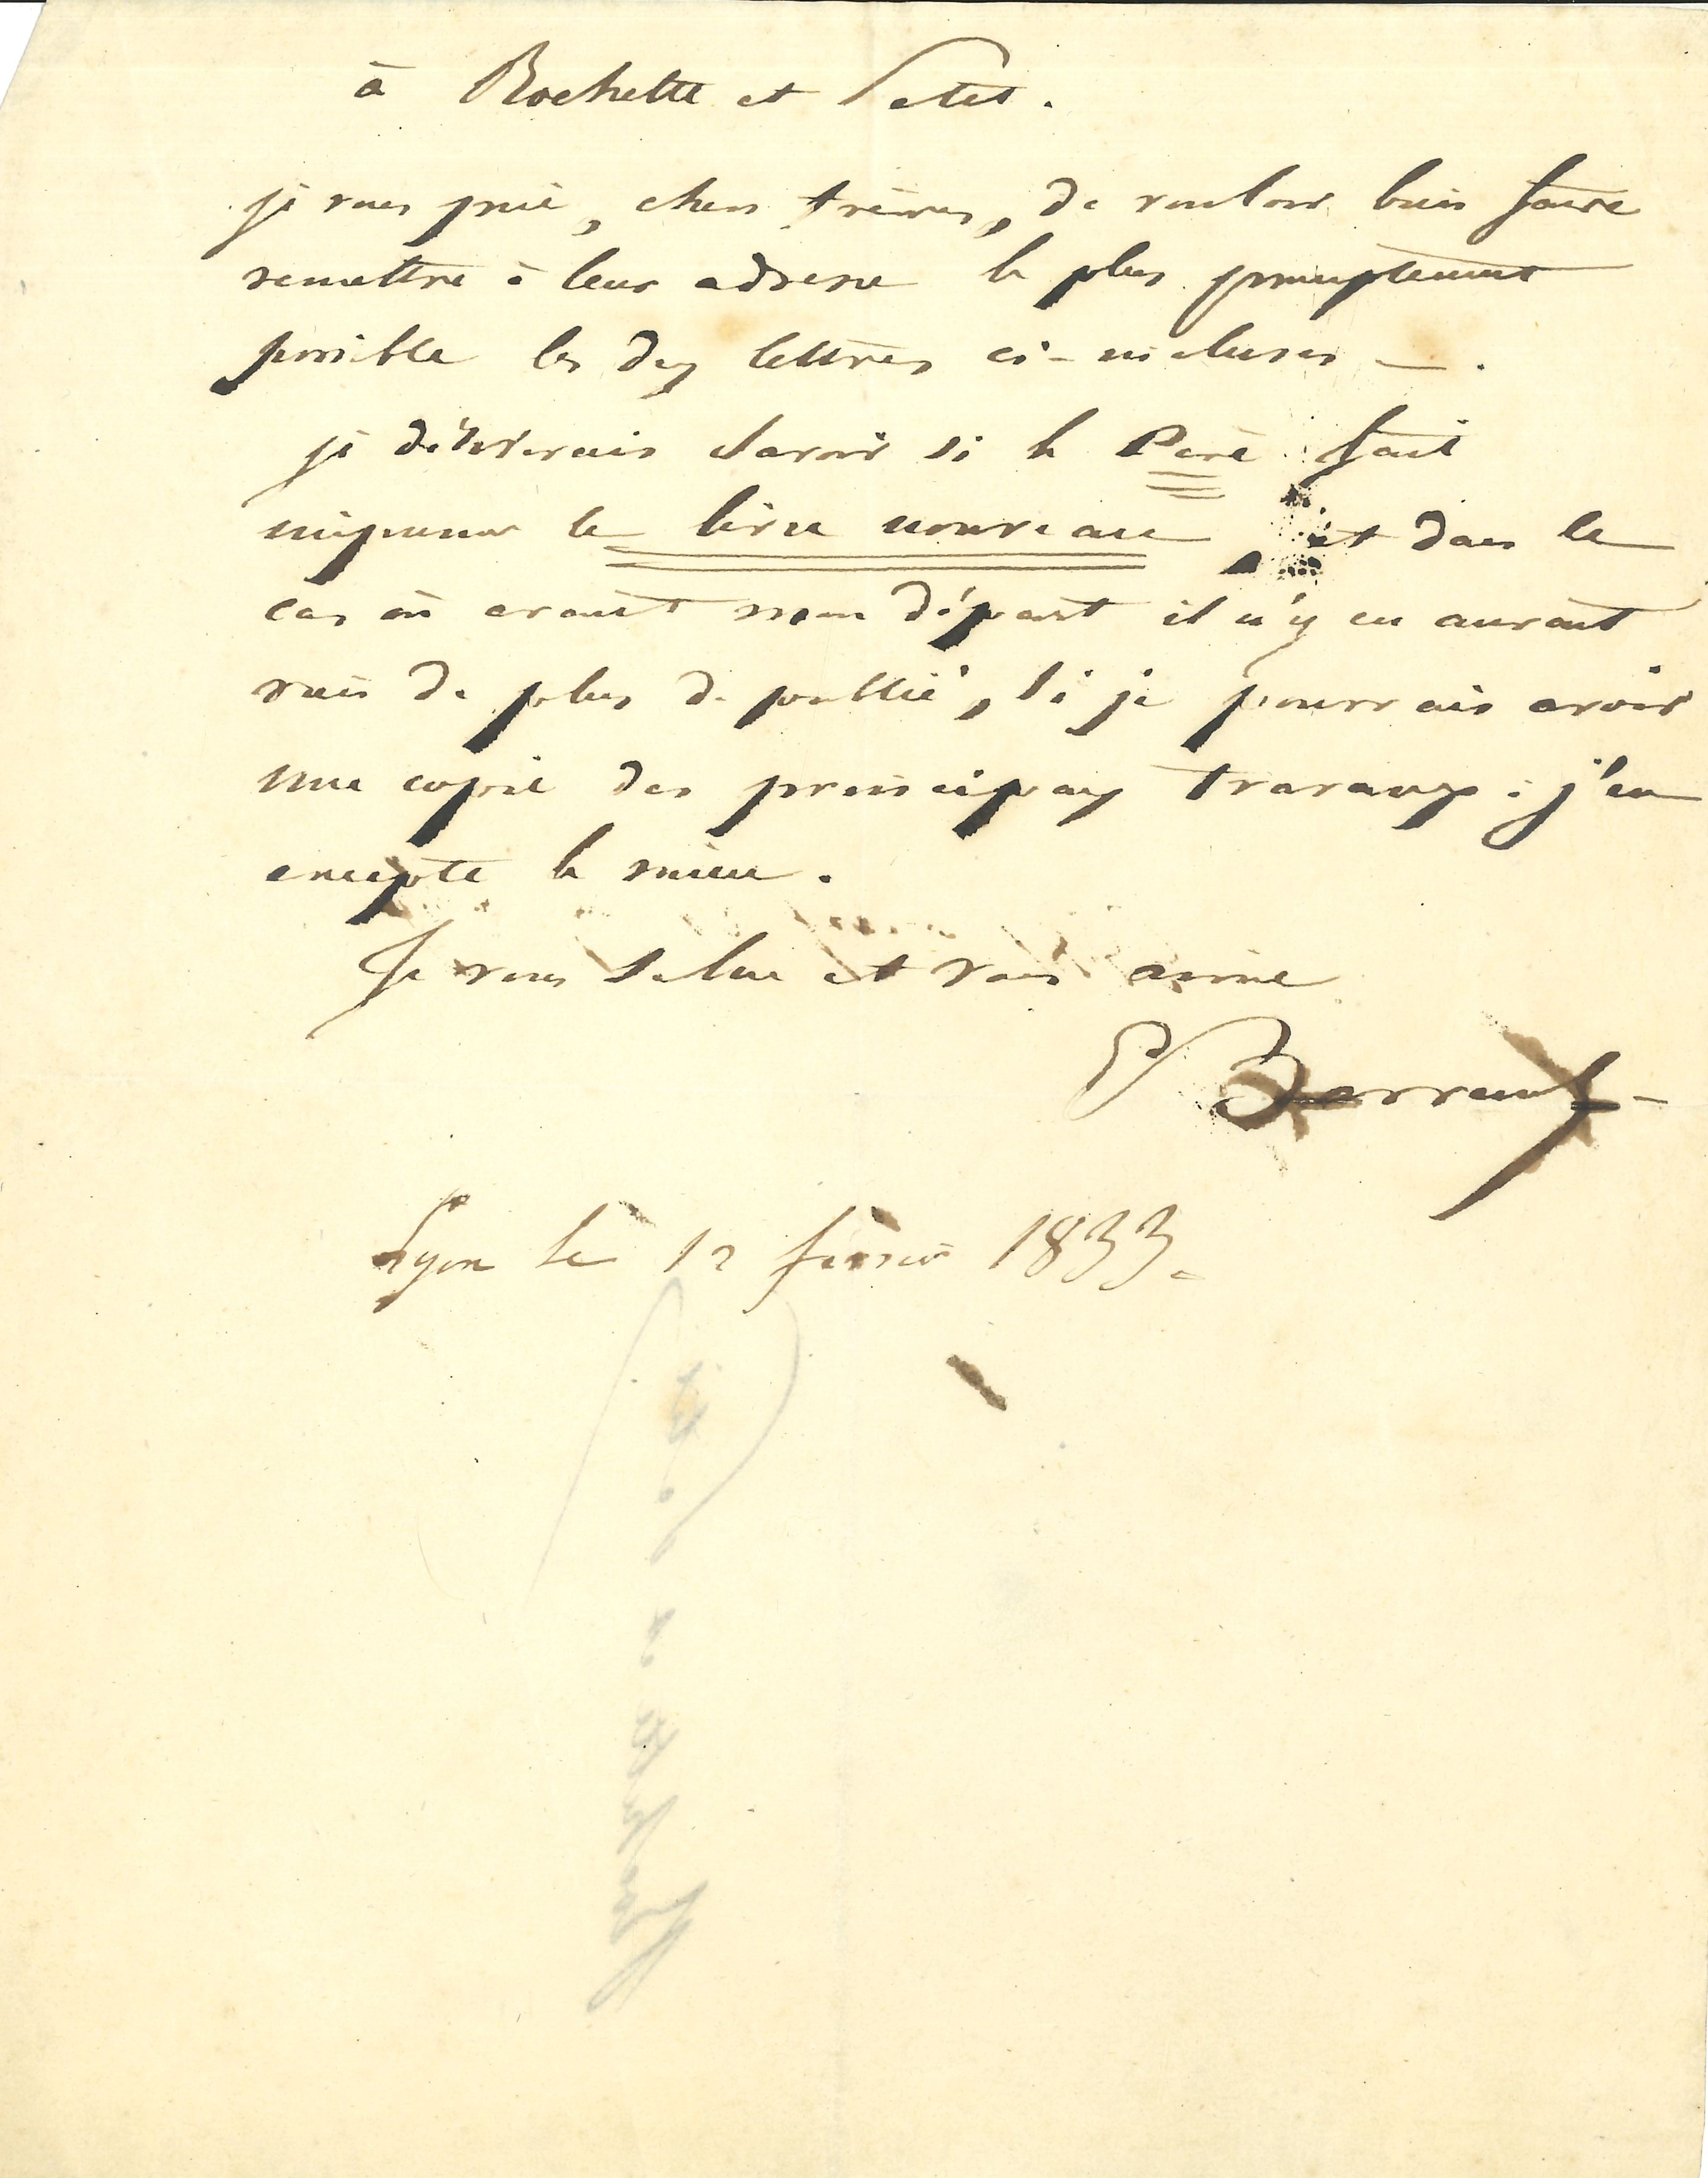 à Rochette et Petit.
je vous prie, chers frères, de vouloir bien faire
remettre à leur adresse le plus promptement
possible les deux lettres ci-incluses — .
je désirerais savoir si le Père fait
imprimer le livre nouveau, et dans le
cas où avant mon départ il n'y en aurait
rien de plus de publié, si je pourrais avoir
une copie des principaux travaux : j'en
excepte le mien.
Je vous salue et vous aime
E Barrault
Lyon le 12 février 1833.